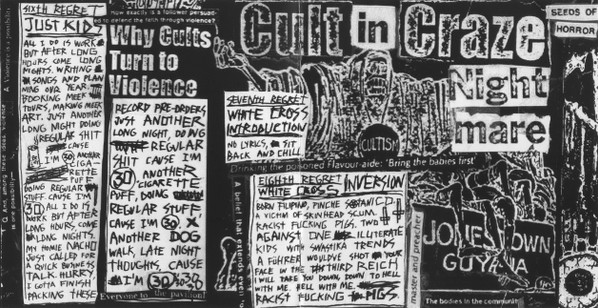 SIXTH REGRET
JUST KIDS
ALL I DO IS WORK
BUT AFTER LONG
HOURS COME LONG
NIGHTS. WRITING
SONGS AND PLAN
NING OUR YEAR.
BOOKING MEEK
TOURS, MAKING MEEK
ART. JUST ANOTHER
LONG NIGHT DOING
REGULAR SHIT
CAUSE
I'M 30 ANOTHER
CIGA-
RETTE
PUFF
DOING REGULAR
STUFF, CAUSE I'M
30 ALL I DO IS
WORK BUT AFTER
LONG HOURS COME
LONG NIGHTS.
MY HOMIE NACHO
JUST CALLED FOR
A QUICK BUSINESS
TALK. HURRY,
I GOTTA FINISH
PACKING THESE
How exactly is a follower persuad-
ed to defend the faith through violence?
Why Cults
Turn to
Violence
RECORD PRE-ORDERS
JUST ANOTHER
LONG NIGHT, DOING
REGULAR
SHIT CAUSE I'M
30 ANOTHER
CIGARETTE
PUFF, DOING
REGULAR STUFF
CAUSE I'M 30 X
ANOTHER DOG
WALK, LATE NIGHT
THOUGHTS, CAUSE
I'M 30
Everyone to the pavilion!
Cult in Craze
Night
mare
SEEDS OF
HORROR
SEVENTH REGRET
WHITE CROSS
INTRODUCTION
NO LYRICS, SIT
BACK AND CHILL
CULTISM
Drinking the poisoned Flavour-aide: 'Bring the babies first'
A belief that extends over
EIGHTH REGRET
WHITE CROSS INVERSION
BORN FILIPINO, PINCHE SATANICO
A VICTIM OF SKINHEAD SCUM.
RACIST FUCKING PIGS. TWO
AGAINST ONE ILLITERATE
KIDS WITH SWASTIKA TRENDS
A FÜHRER WOULD'VE SHOT YOUR
FACE IN THE THIRD REICH
I WILL TAKE YOU DOWN, DOWN TO HELL
WITH ME. HELL WITH ME.
RACIST FUCKING PIGS
master and preacher
JONESTOWN
GUYANA
The bodies in the communal